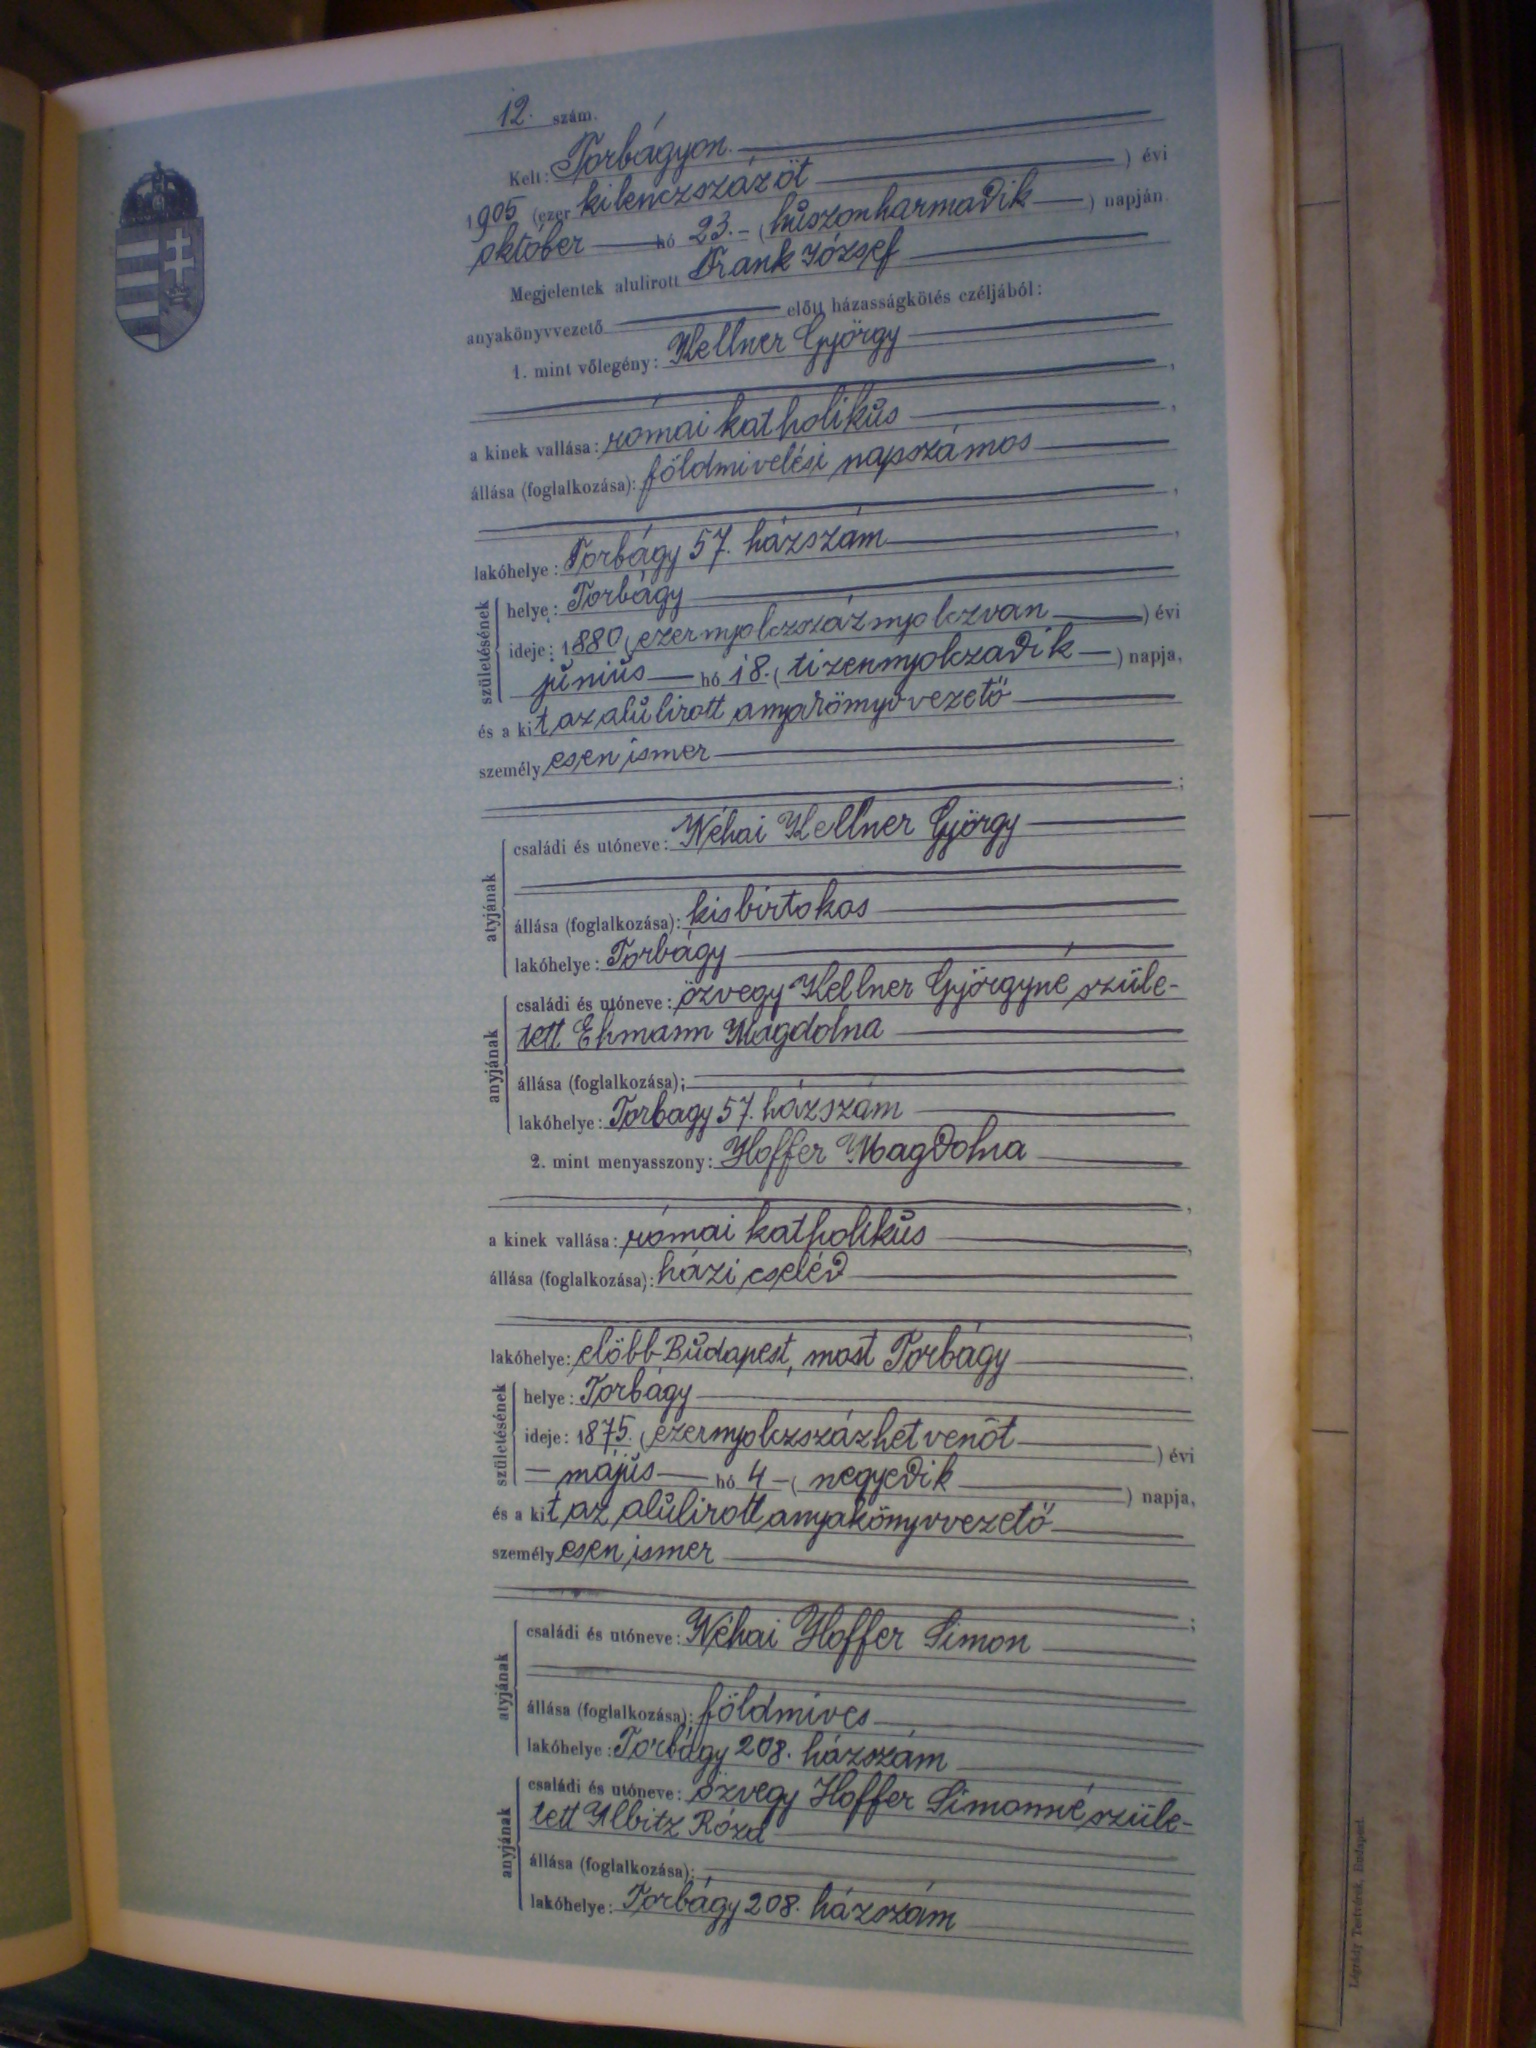 12. szám.
Kelt: Torbágyon.
1905 (ezer kilenczszázöt ) évi
október hó 23. (huszonharmadik ) napján.
Megjelentek alulirott Frank József
anyakönyvvezető előtt házasságkötés czéljából:
1. mint vőlegény: Kellner György
,
a kinek vallása: római katholikus ,
állása (foglalkozása): földmivelési napszámos
,
lakóhelye: Torbágy 57. házszám ,
születésének
helye: Torbágy
ideje: 1880 (ezernyolczszáznyolczvan ) évi
június hó 18. (tizennyolczadik ) napja,
és a kit az alulirott anyakönyvvezető
személyesen ismer
;
atyjának
családi és utóneve: Néhai Kellner György
állása (foglalkozása): kisbirtokos
lakóhelye: Torbágy
anyjának
családi és utóneve: özvegy Kellner Györgyné szüle-
tett Ehmann Magdolna
állása (foglalkozása):
lakóhelye: Torbagy 57. házszám
2. mint menyasszony: Hoffer Magdolna
,
a kinek vallása: római katholikus ,
állása (foglalkozása): házi cseléd
,
lakóhelye: előbb Budapest, most Torbágy
születésének
helye: Torbágy
ideje: 1875. (ezernyolczszázhetvenöt ) évi
május hó 4 (negyedik ) napja,
és a kit az alulirott anyakönyvvezető
személyesen ismer
;
atyjának
családi és utóneve: Néhai Hoffer Simon
állása (foglalkozása): földmives
lakóhelye: Torbágy 208. házszám
anyjának
családi és utóneve: özvegy Hoffer Simonné szüle-
tett Albitz Róza
állása (foglalkozása):
lakóhelye: Torbágy 208. házszám
Légrády Testvérek, Budapest.